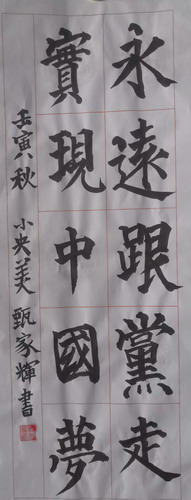 永遠跟黨走
實現中國夢
壬寅秋 小央美 甄家輝書